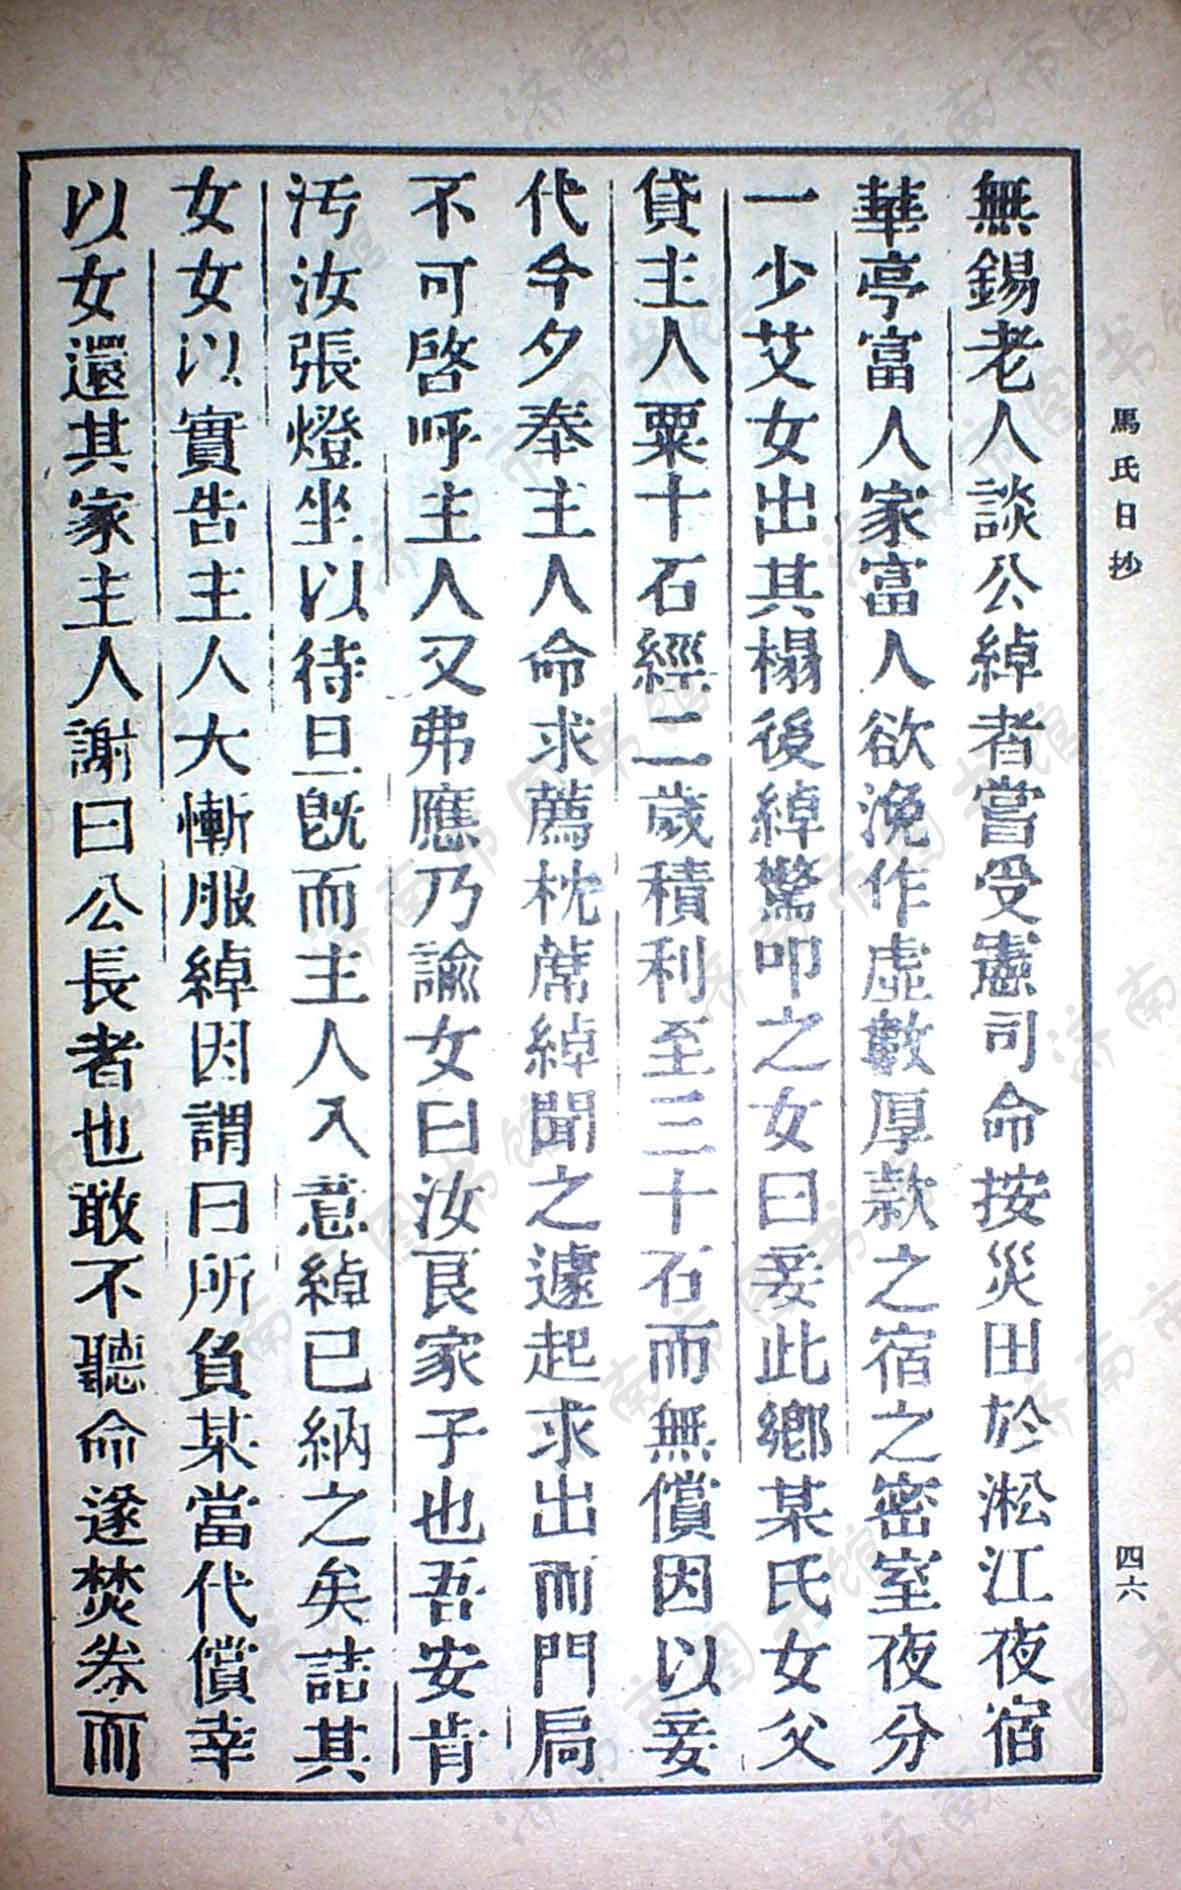 馬氏日抄
四六
無錫老人談公綽者嘗受憲司命按災田於淞江夜宿
華亭富人家富人欲浼作虛數厚款之宿之密室夜分
一少艾女出其榻後綽驚叩之女曰妾此鄉某氏女父
貸主人粟十石經二歲積利至三十石而無償因以妾
代今夕奉主人命求薦枕蓆綽聞之遽起求出而門局
不可啓呼主人又弗應乃諭女曰汝良家子也吾安肯
汚汝張燈坐以待旦既而主人入意綽已納之矣詰其
女女以實告主人大慚服綽因謂曰所負某當代償幸
以女還其家主人謝曰公長者也敢不聽命遂焚券而
济南市图书馆